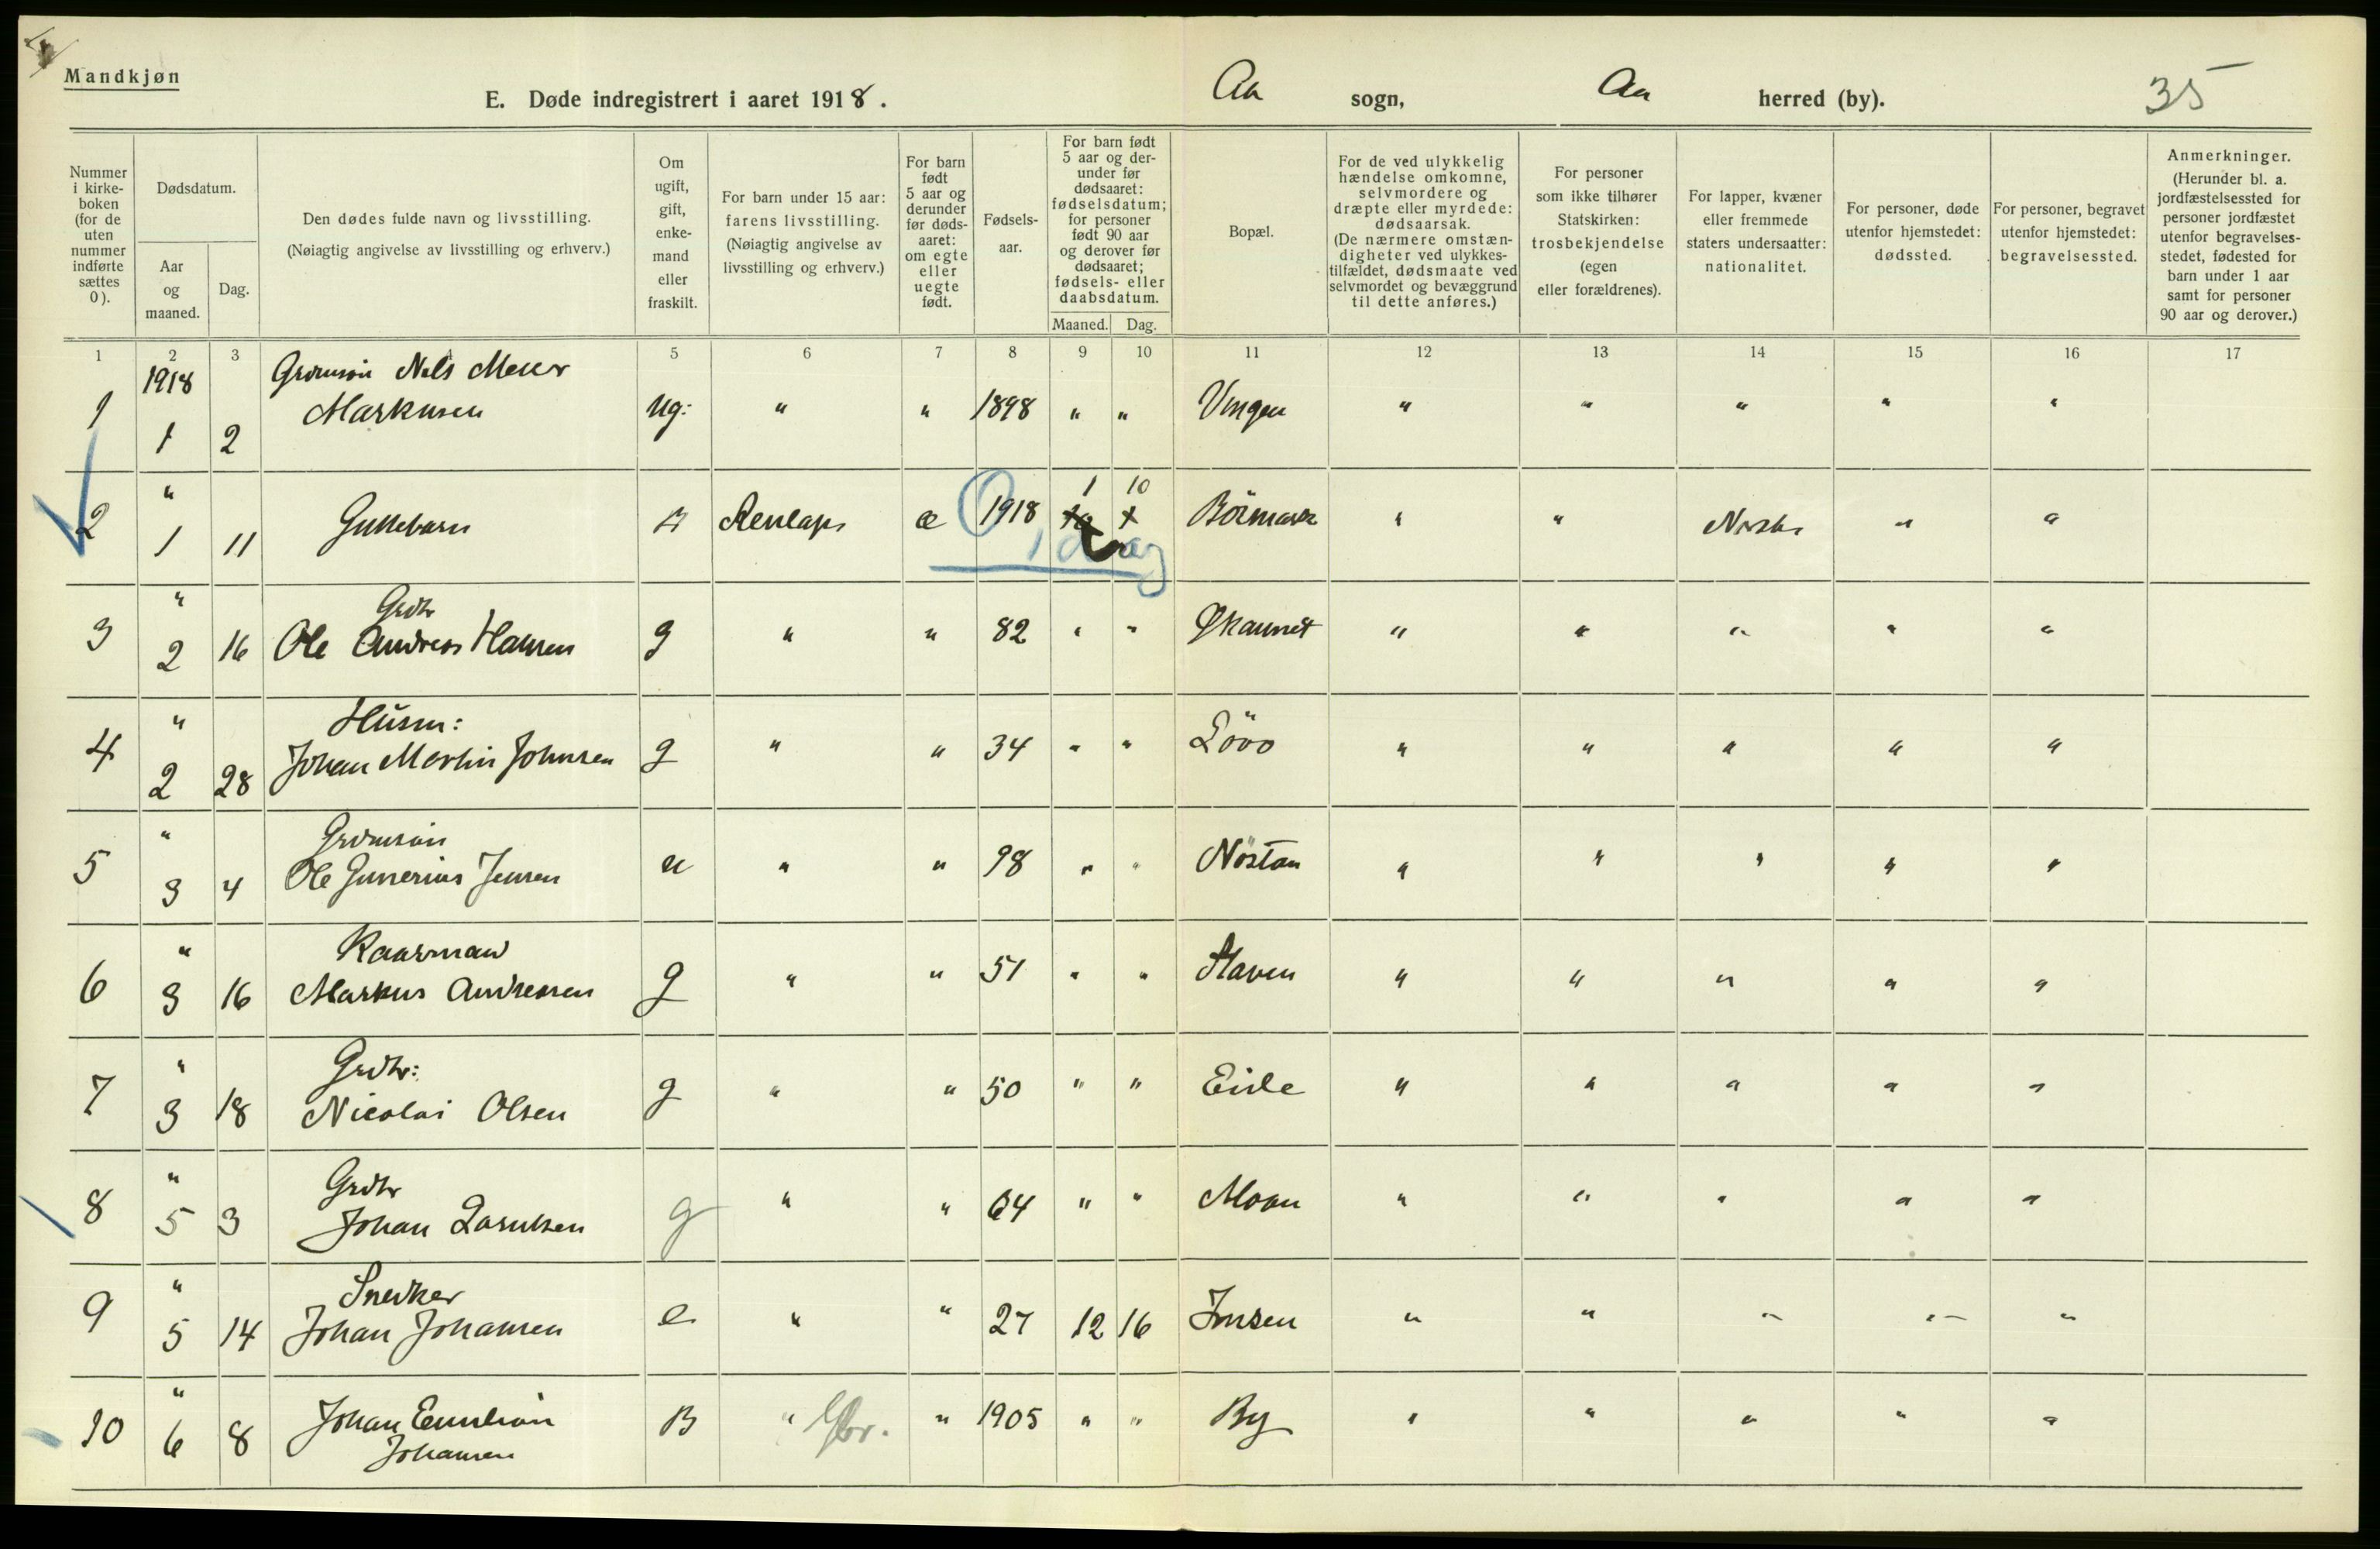 Mandkjøn
E. Døde indregistrert i aaret 1918. Aa sogn, Aa herred (by). 35
Nummer i kirke-boken (for de uten nummer indførte sættes 0).
Dødsdatum.
Aar og maaned.
Dag.
Den dødes fulde navn og livsstilling.
(Nøiagtig angivelse av livsstilling og erhverv.)
Om ugift, gift, enke-mand eller fraskilt.
For barn under 15 aar: farens livsstilling.
(Nøiagtig angivelse av livsstilling og erhverv.)
For barn født 5 aar og derunder før døds-aaret: om egte eller uegte født.
Fødsels-aar.
For barn født 5 aar og der-under før dødsaaret: fødselsdatum; for personer født 90 aar og derover før dødsaaret; fødsels- eller daabsdatum.
Maaned. Dag.
Bopæl.
For de ved ulykkelig hændelse omkomne, selvmordere og dræpte eller myrdede: dødsaarsak.
(De nærmere omstæn-digheter ved ulykkes-tilfældet, dødsmaate ved selvmordet og bevæggrund til dette anføres.)
For personer som ikke tilhører Statskirken: trosbekjendelse (egen eller forældrenes).
For lapper, kvæner eller fremmede staters undersaatter: nationalitet.
For personer, døde utenfor hjemstedet: dødssted.
For personer, begravet utenfor hjemstedet: begravelsessted.
Anmerkninger.
(Herunder bl. a. jordfæstelsessted for personer jordfæstet utenfor begravelses-stedet, fødested for barn under 1 aar samt for personer 90 aar og derover.)
1 2 3 4 5 6 7 8 9 10 11 12 13 14 15 16 17
1918 Nils Meier
1 1 2 Markusen ug: " " 1898 " " Vingen " " " " "
" 1 10
2 1 11 Guttebarn Renlaps æ 1918 " " " "
1 dag
" Grdbr
3 2 16 Ole Andreas Hansen g " " 82 " " " " " " "
" Husm:
4 2 28 Johan Martin Johnsen g " " 34 " " " " " " "
"
5 3 4 Ole Gunerius Jensen u " " 98 " " Nöstan " " " " "
" Kaarmand
6 3 16 Markus Andressen g " " 51 " " Haven " " " " "
" Grdbr:
7 3 18 Nicolai Olsen g " " 50 " " Eide " " " " "
" Grdbr
8 5 3 Johan g " " 64 " " Moan " " " " "
" Snedker
9 5 14 Johan Johansen e " " 27 12 16 " " " " "
"
10 6 8 Johan B " Gbr. " 1905 " " By " " " " "
Johansen